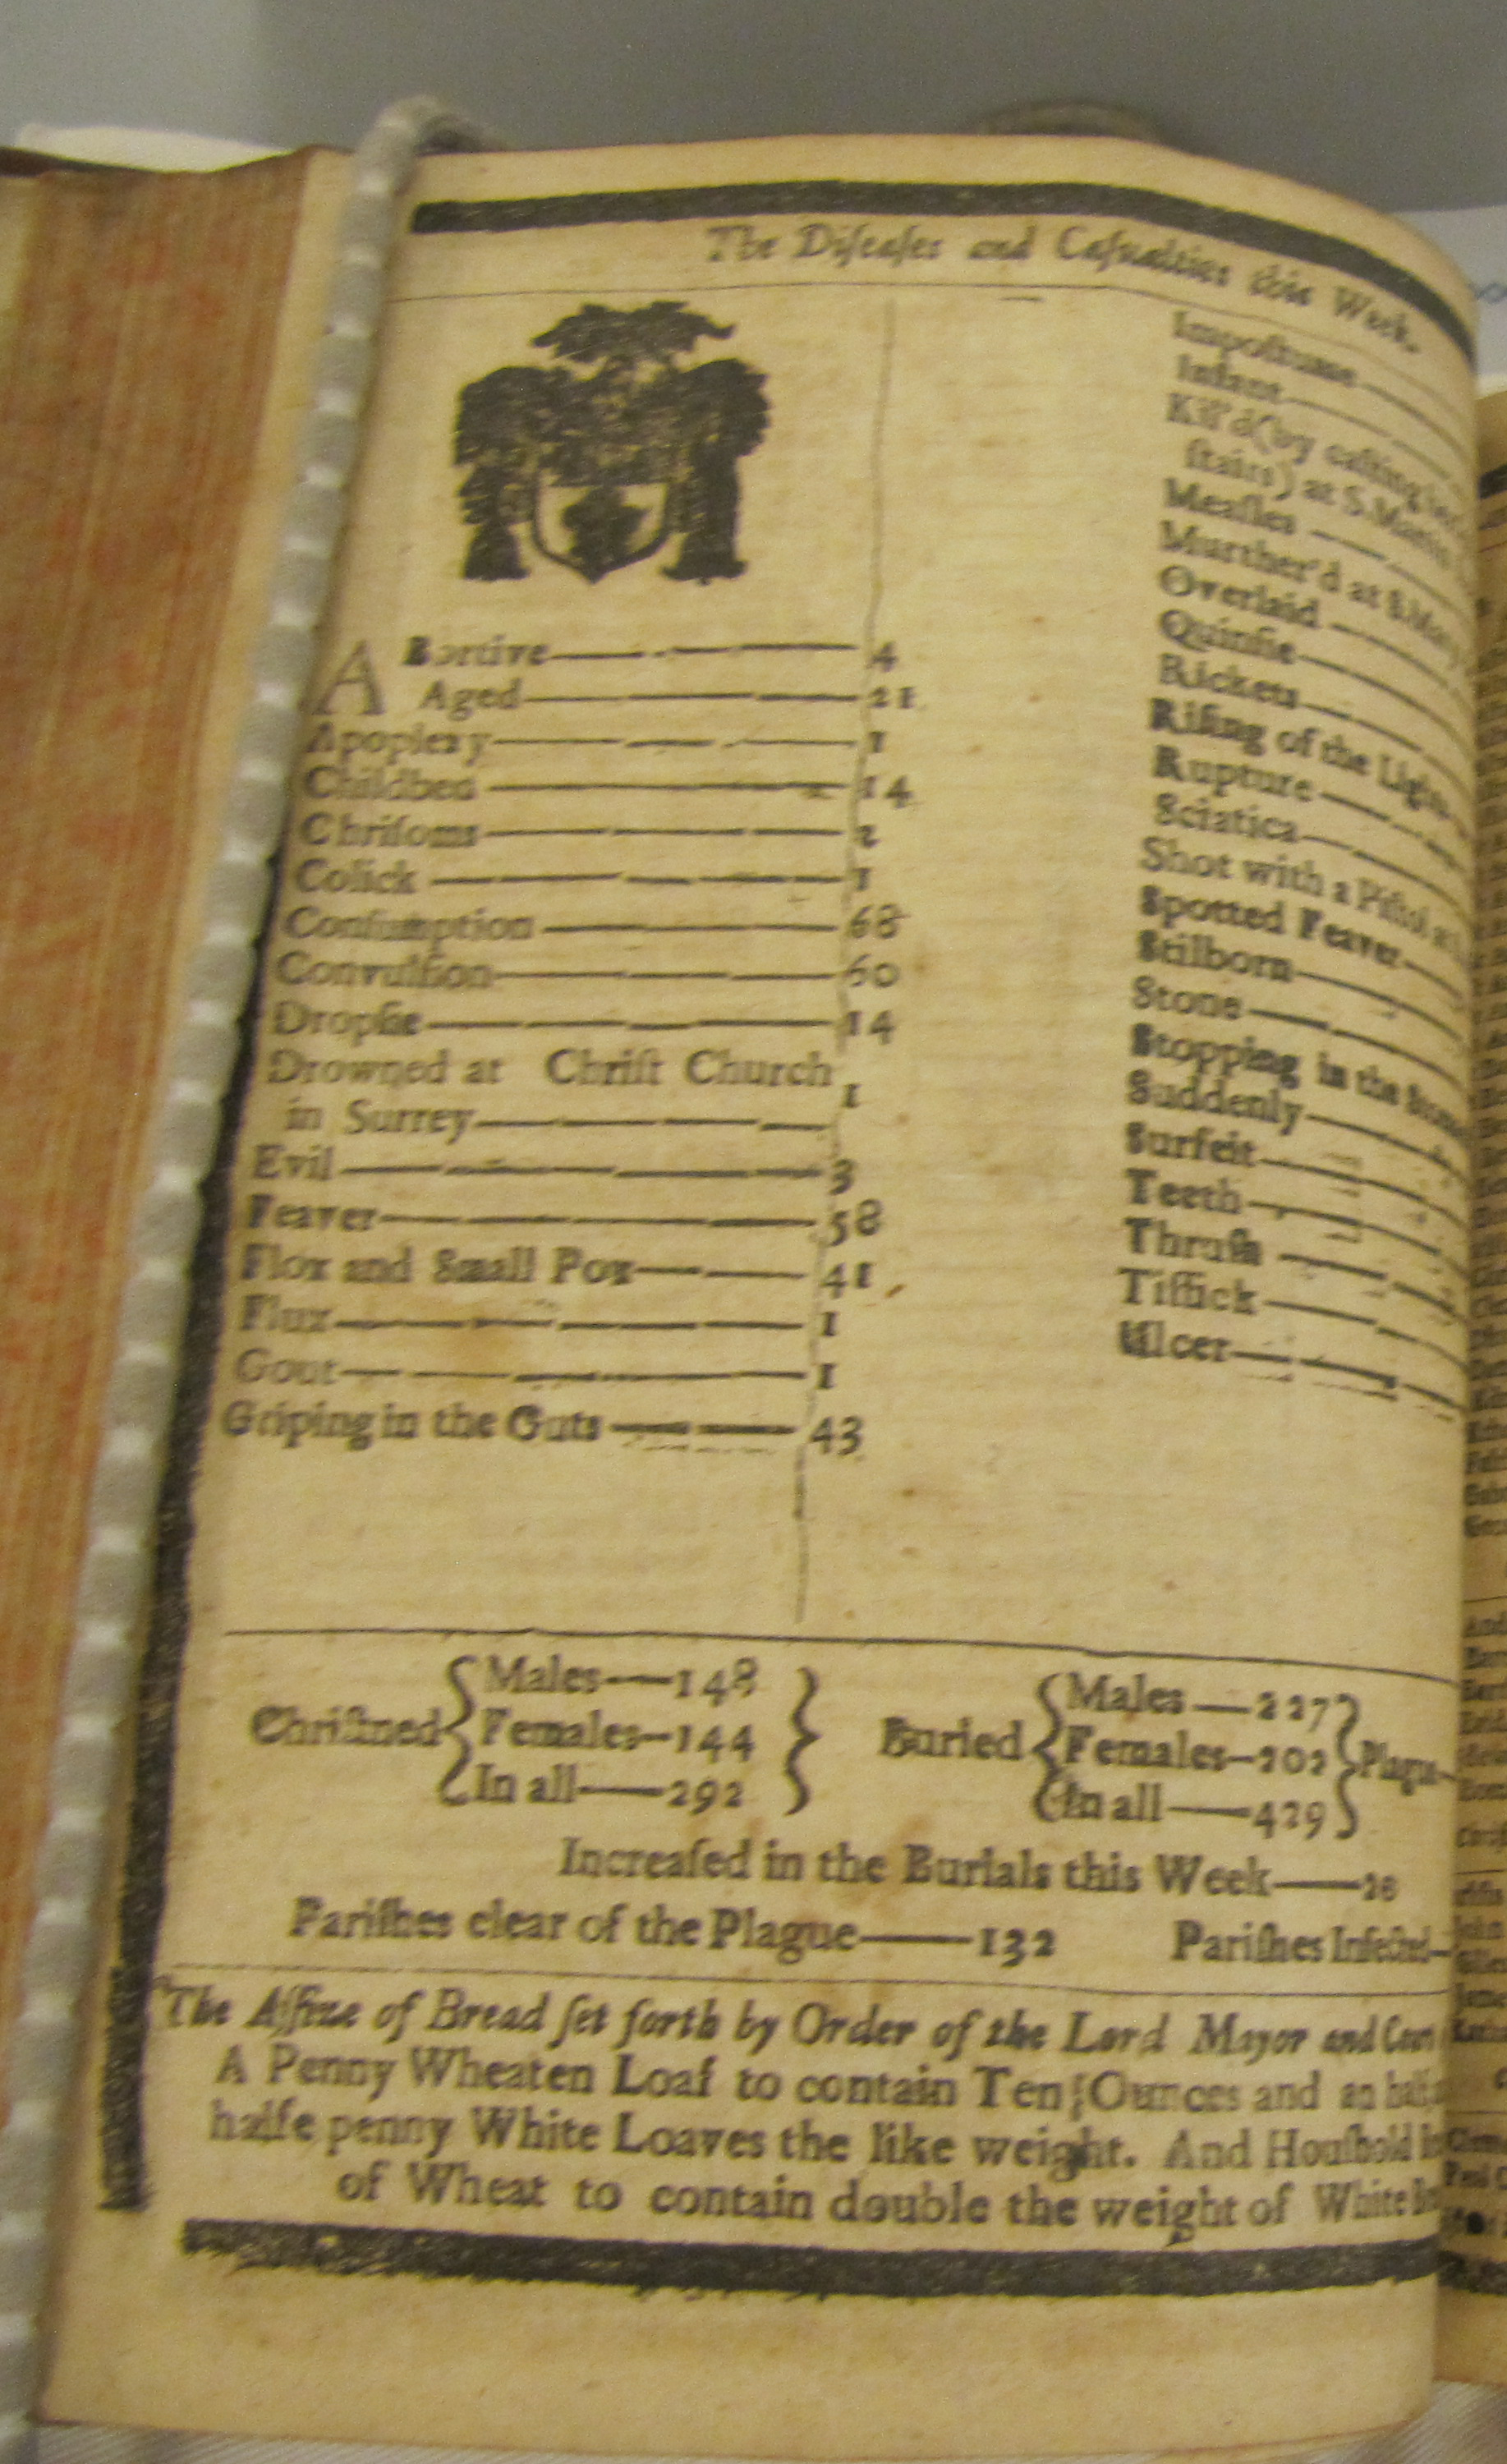 The Diſeaſes and Caſualties this Week.
ABortive 4
Aged 21
Apoplexy 1
Childbed 14
Chriſoms 2
Colick 1
Conſumption 68
Convulſion 60
Dropſie 14
Drowned at Chriſt Church
in Surrey 1
Evil 3
Feaver 58
Flox and Small Pox 41
Flux 1
Gout 1
Griping in the Guts 43
Impoſtume
Infant
Kil'd (by caſting
ſtairs) at S. Martin
Meaſles
Murther'd at S. Mary
Overlaid
Quinſie
Rickets
Riſing of the Lights
Rupture
Sciatica
Shot with a Piſtol at
Spotted Feaver
Stilborn
Stone
Stopping in the Stom
Suddenly
Surfeit
Teeth
Thruſh
Tiſſick
Ulcer
Chriſtned { Males—148 Females—144 In all—292 }
Buried { Males—227 Females—202 In all—429 } Plague—
Increaſed in the Burials this Week—
Pariſhes clear of the Plague—132 Pariſhes Infected—
The Aſſize of Bread ſet forth by Order of the Lord Mayor and Court
A Penny Wheaten Loaf to contain Ten Ounces and an half,
halfe penny White Loaves the like weight. And Houſhold
of Wheat to contain double the weight of White